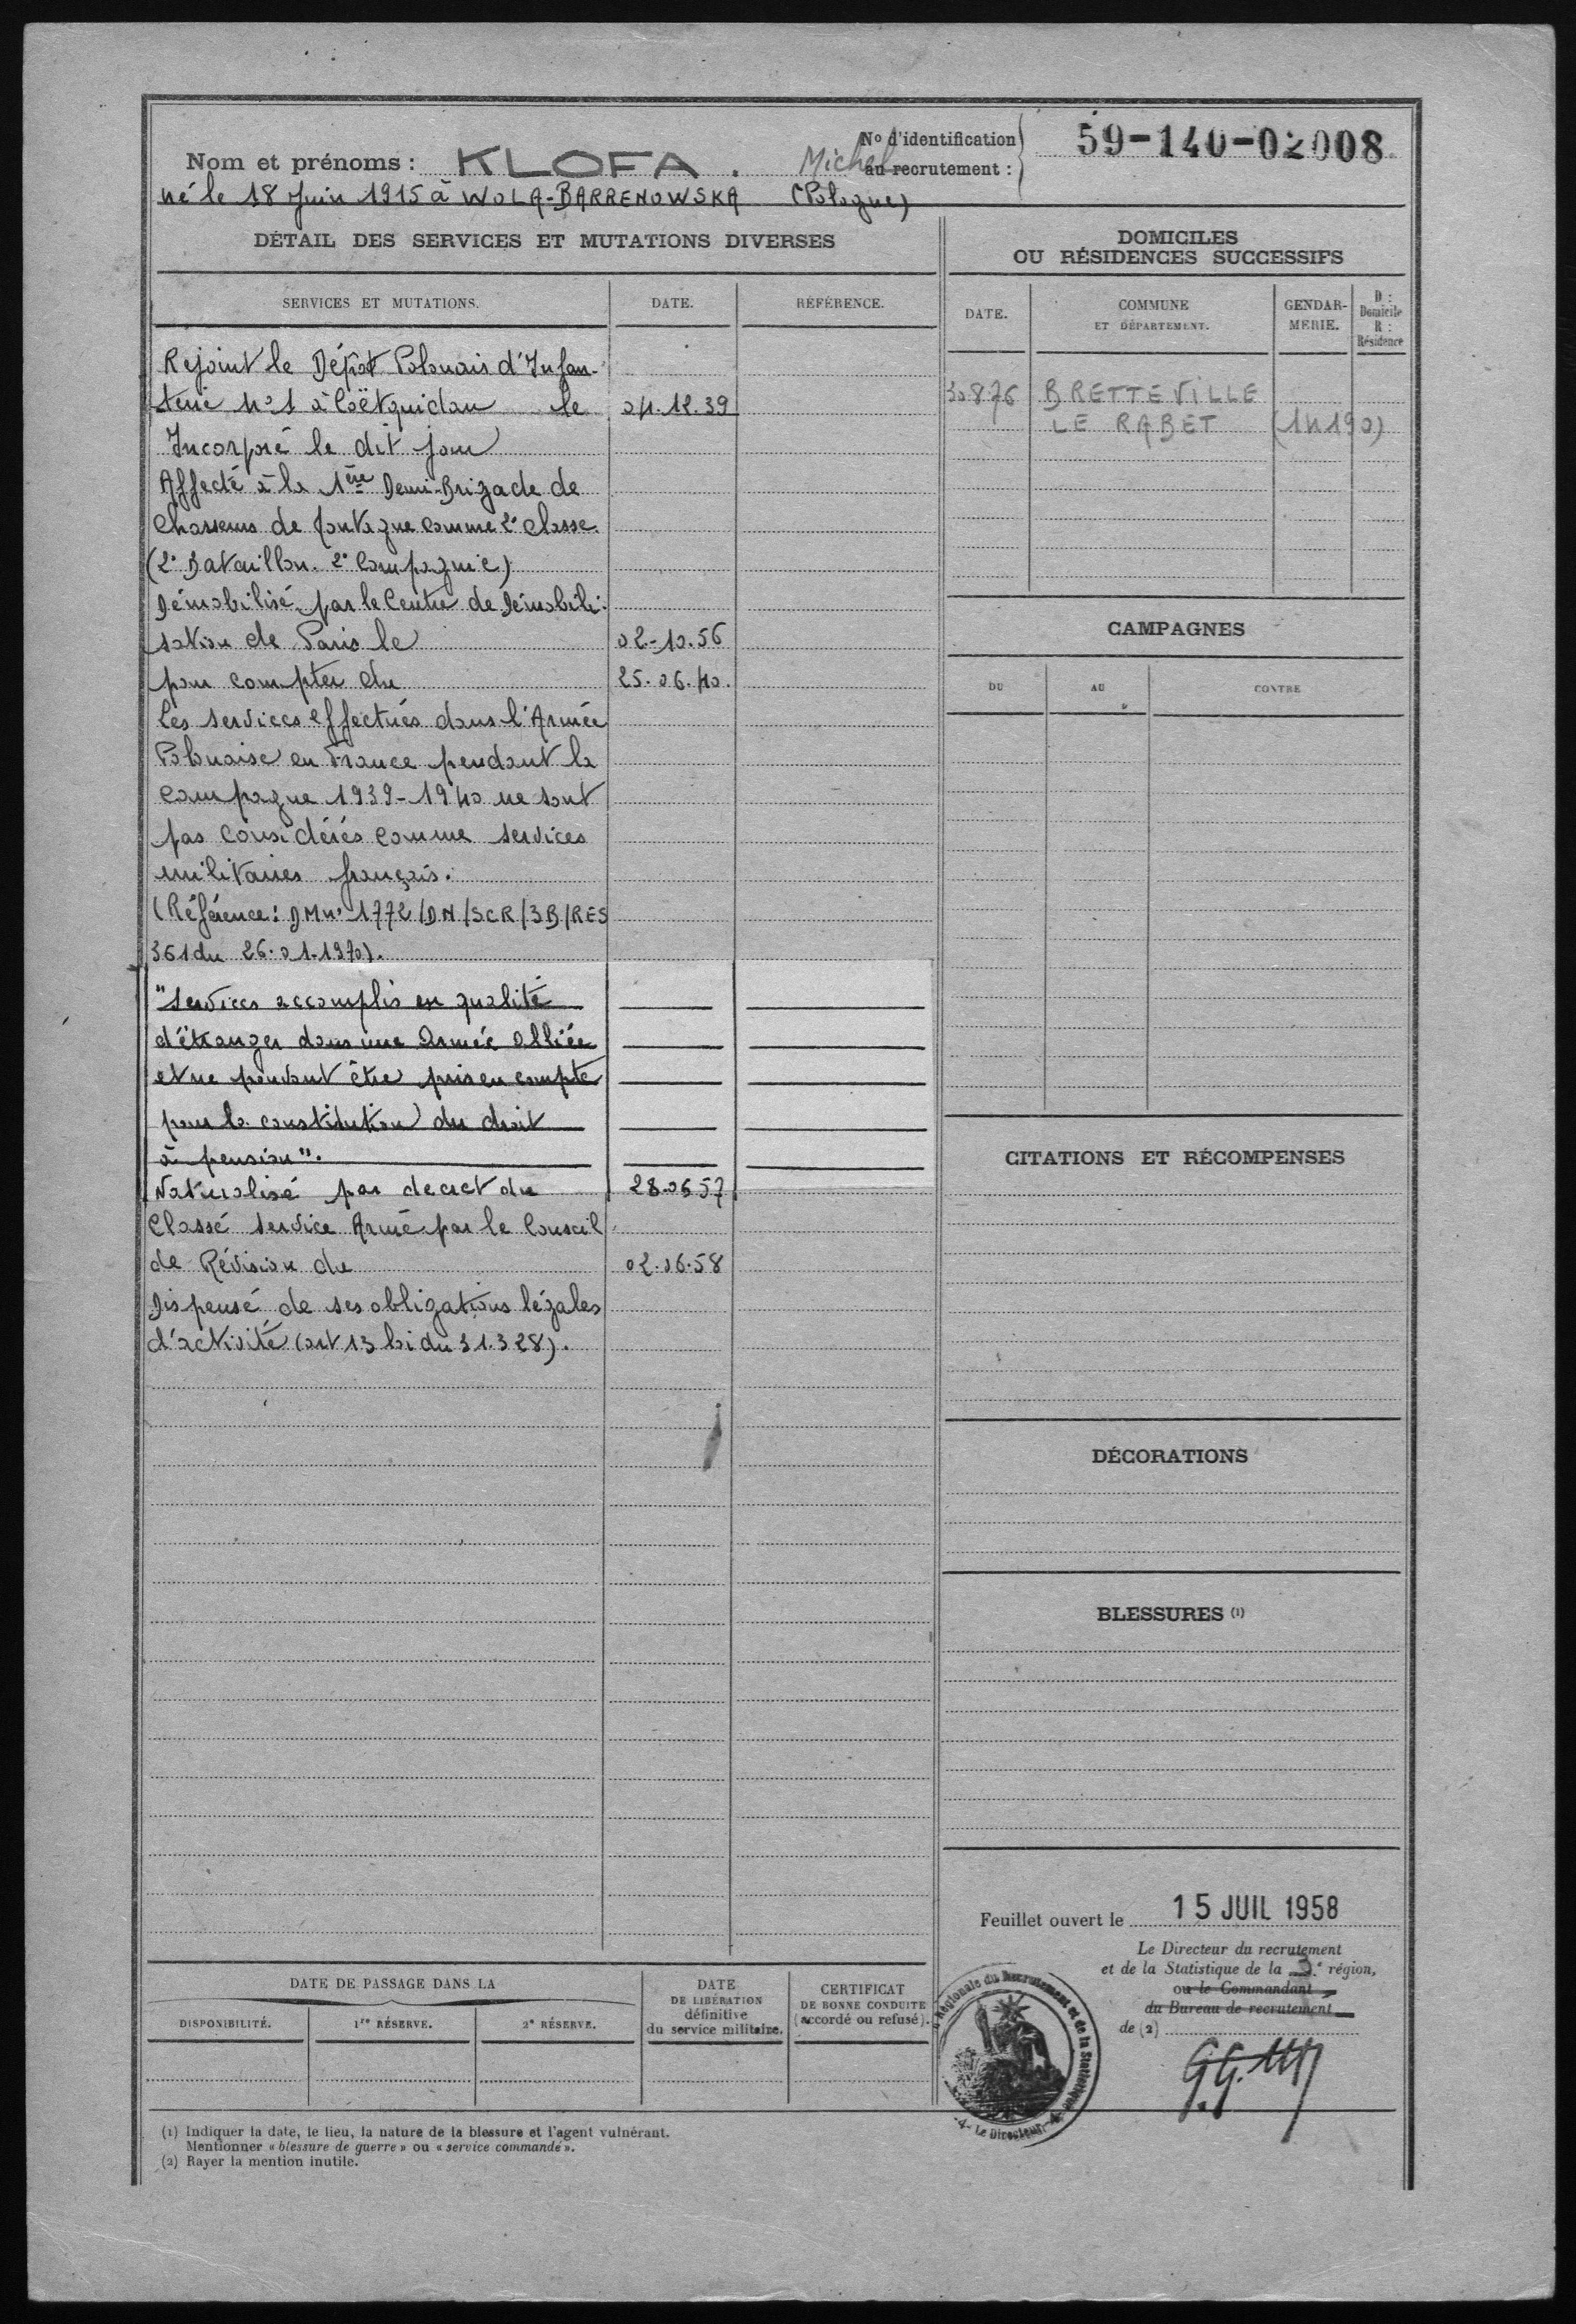 Nom et prénoms : KLOFA. Michel
né le 18 Juin 1915 à WOLA-BARRENOWSKA (Pologne)
No d'identification
au recrutement :
59-140-02008
DÉTAIL DES SERVICES ET MUTATIONS DIVERSES
SERVICES ET MUTATIONS. DATE. RÉFÉRENCE.
Rejoint le Dépot Polonais d'Infan-
terie No 1 à Coëtquidan le 04.12.39
Incorporé le dit jour
Affecté à la 1ère Demi-Brigade de
Chasseurs de Montagne comme 2e Classe.
(2e Bataillon. 2e Compagnie)
Démobilisé par le Centre de Démobili-
sation de Paris le 02-10.56
pour compter du 25.06.40.
Les services effectués dans l'Armée
Polonaise en France pendant la
campagne 1939-1940 ne sont
pas considérés comme services
militaires français.
(Référence: DM no 1772/DN/SCR/3B/RES
361 du 26.01.1970).
"Services accomplis en qualité
d'étranger dans une Armée alliée
et ne pouvant être pris en compte
pour la constitution du droit
à pension".
Naturalisé par decret du 28.06 57
Classé service Armé par le Conseil
de Révision du 02.06.58
Dispensé de ses obligations légales
d'activité (art 13 loi du 31.3 28).
DOMICILES
OU RÉSIDENCES SUCCESSIFS
DATE. COMMUNE ET DÉPARTEMENT. GENDAR-MERIE. D : Domicile R : Résidence
30876 BRETTEVILLE
LE RABET (14190)
CAMPAGNES
DU AU CONTRE
CITATIONS ET RÉCOMPENSES
DÉCORATIONS
BLESSURES (1)
Feuillet ouvert le 15 JUIL 1958
Le Directeur du recrutement
et de la Statistique de la 3e région,
ou le Commandant
du Bureau de recrutement
de (2)
Régionale du Recrutement et de la Statistique
-4- Le Directeur -4-
DATE DE PASSAGE DANS LA
DISPONIBILITÉ. 1re RÉSERVE. 2e RÉSERVE.
DATE
DE LIBÉRATION
définitive
du service militaire.
CERTIFICAT
DE BONNE CONDUITE
(accordé ou refusé).
(1) Indiquer la date, le lieu, la nature de la blessure et l'agent vulnérant.
Mentionner « blessure de guerre » ou « service commandé ».
(2) Rayer la mention inutile.